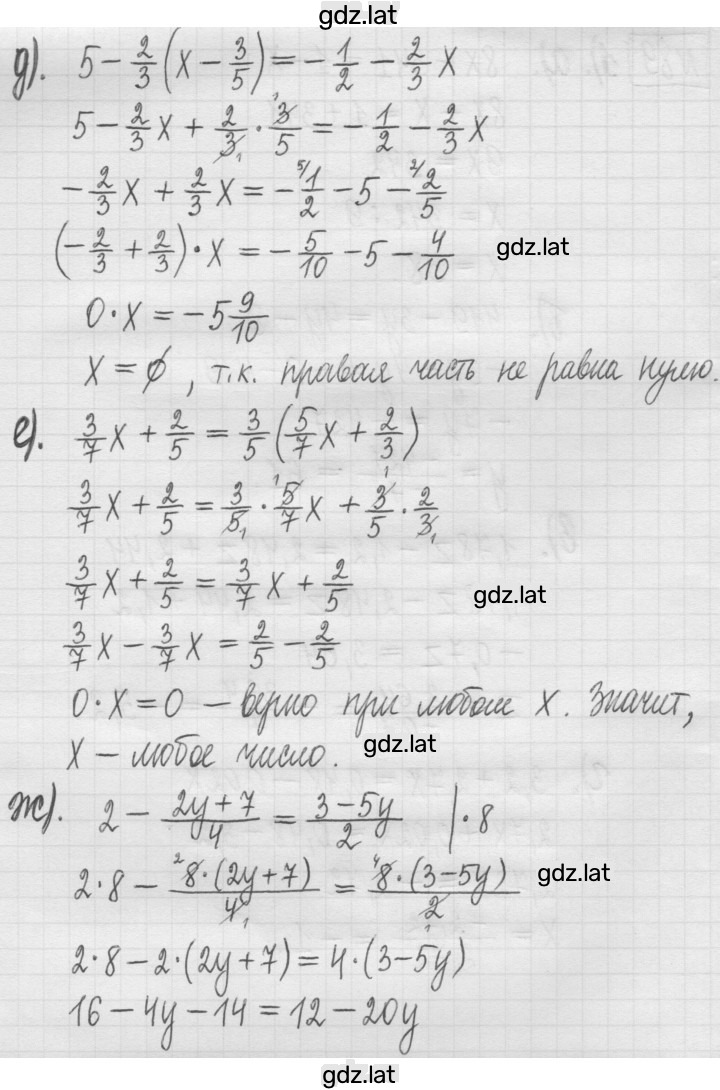 gdz.lat
д). 5 − 2/3 (x − 3/5) = − 1/2 − 2/3 x
5 − 2/3 x + 2/3 · 3/5 = − 1/2 − 2/3 x
− 2/3 x + 2/3 x = − 1/2 − 5 − 2/5
(− 2/3 + 2/3) · x = − 5/10 − 5 − 4/10 gdz.lat
0 · x = − 5 9/10
x = ∅, т.к. правая часть не равна нулю.
е). 3/7 x + 2/5 = 3/5 (5/7 x + 2/3)
3/7 x + 2/5 = 3/5 · 5/7 x + 3/5 · 2/3
3/7 x + 2/5 = 3/7 x + 2/5 gdz.lat
3/7 x − 3/7 x = 2/5 − 2/5
0 · x = 0 – верно при любом x. Значит,
x – любое число. gdz.lat
ж). 2 − (2y + 7)/4 = (3 − 5y)/2 | · 8
2 · 8 − 8 · (2y + 7)/4 = 8 · (3 − 5y)/2 gdz.lat
2 · 8 − 2 · (2y + 7) = 4 · (3 − 5y)
16 − 4y − 14 = 12 − 20y
gdz.lat